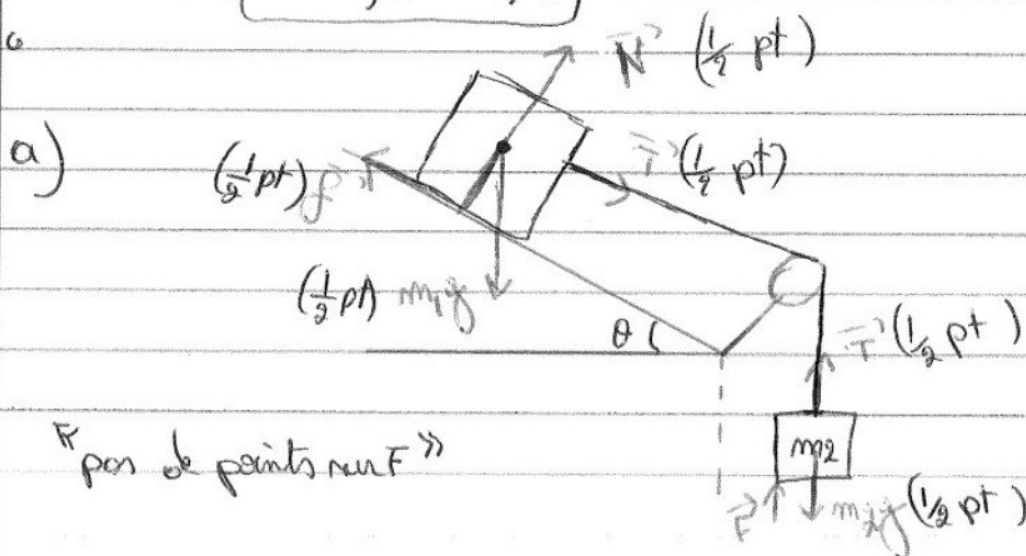 N⃗ (½ pt)
a)
(½ pt) f⃗
T⃗ (½ pt)
(½ pt) m₁g
θ
T⃗ (½ pt)
m2
"pas de points sur F"
F⃗
m₂g (½ pt)